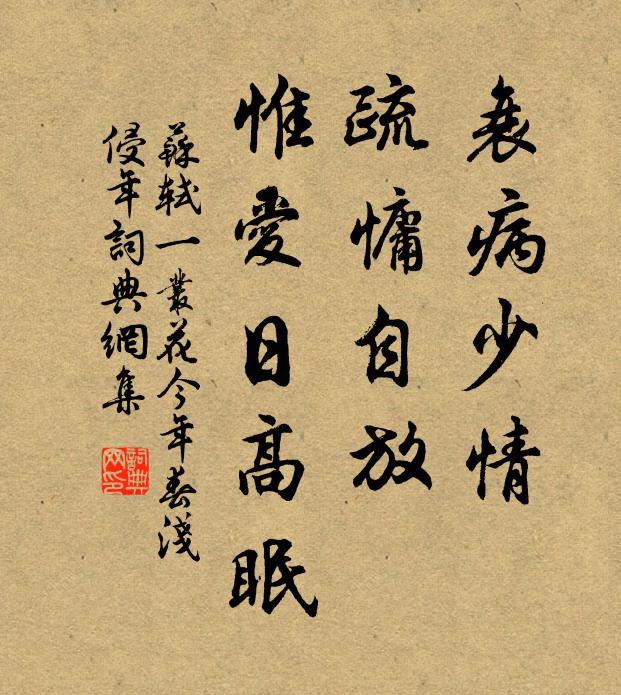 衰病少情
疏慵自放
惟愛日高眠
蘇軾一叢花今年春淺
侵年詞典網集
詞典
网印